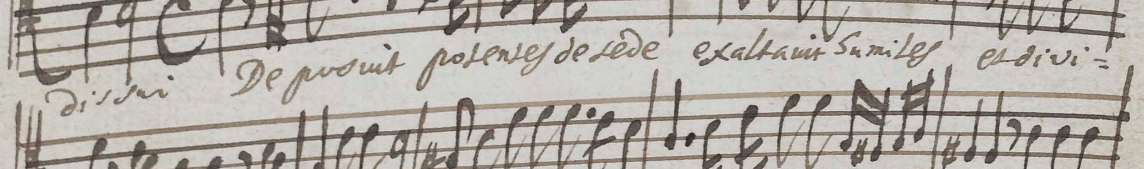 dissui Deposuit potentes de sede exaltavit Sumiles et divi=